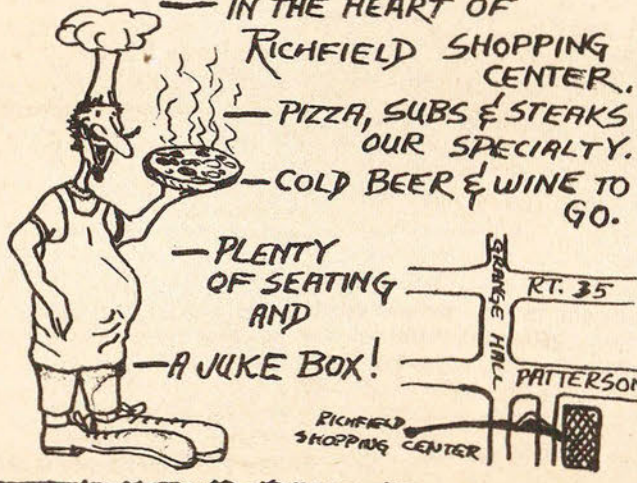 — IN THE HEART OF
RICHFIELD SHOPPING
CENTER.
— PIZZA, SUBS & STEAKS
OUR SPECIALTY.
— COLD BEER & WINE TO
GO.
— PLENTY
OF SEATING
AND
— A JUKE BOX!
GRANGE HALL
RT. 35
PATTERSON
RICHFIELD
SHOPPING CENTER